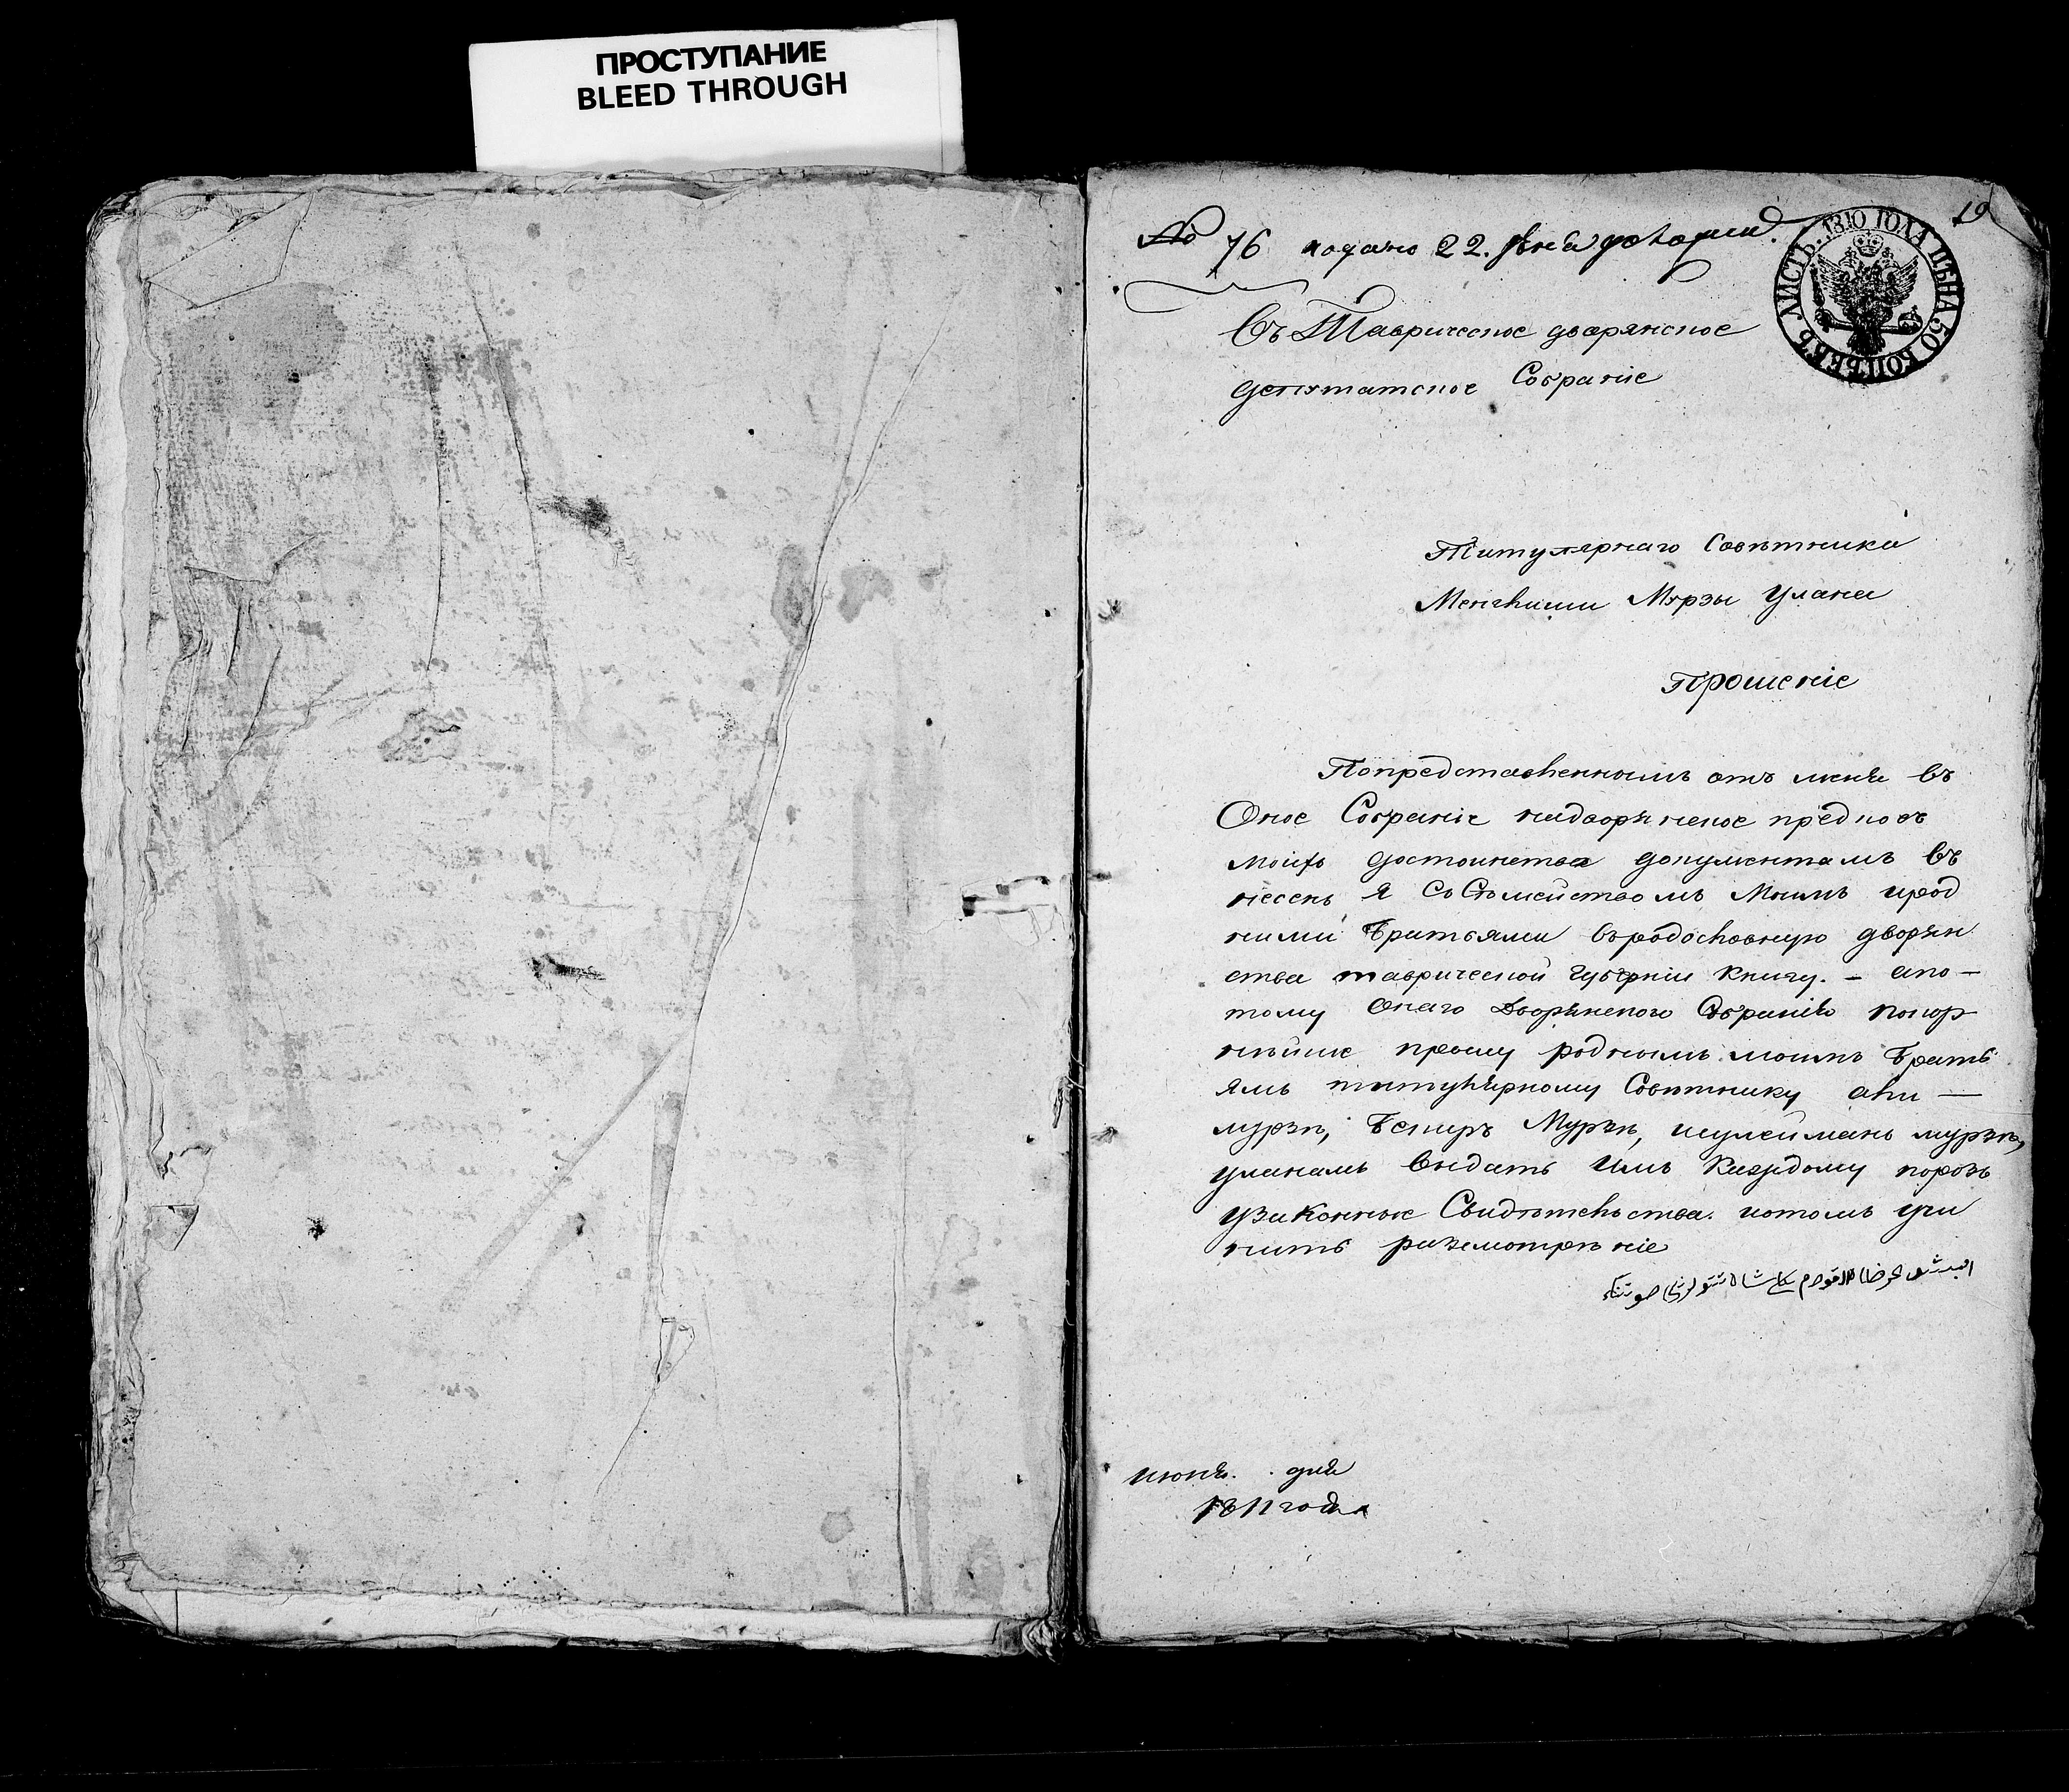 ПРОСТУПАНИЕ
BLEED THROUGH
19
№ 76 подано 22.
ЛИСТЪ. 1810 ГОДА ЦѢНА 50 КОПѢЕКЪ
Въ Таврическое дворянское
депутатское Собраніе
Титулярнаго Совѣтника
Менглиши Мурзы Улана
Прошеніе
Попредставленнымъ отъ меня въ
Оное Собраніе надворянское предковъ
моихъ достоинства документамъ въ
несенъ я съ Семействомъ Моимъ ирод
ними Братьями въродословную дворян
ства таврической губерніи Книгу. — апо—
тому Онаго Дворянского Собранія покор
нѣйше прошу роднымъ моимъ Брать
ямъ титулярному Совѣтнику али —
мурзѣ, Бекирь Мурзѣ, исулейманъ мурзѣ,
уланамъ Выдать имъ Каждому порознь
узаконные Свидѣтельства. итомъ учи
нить разсмотреніе
июня. дня
1811 года